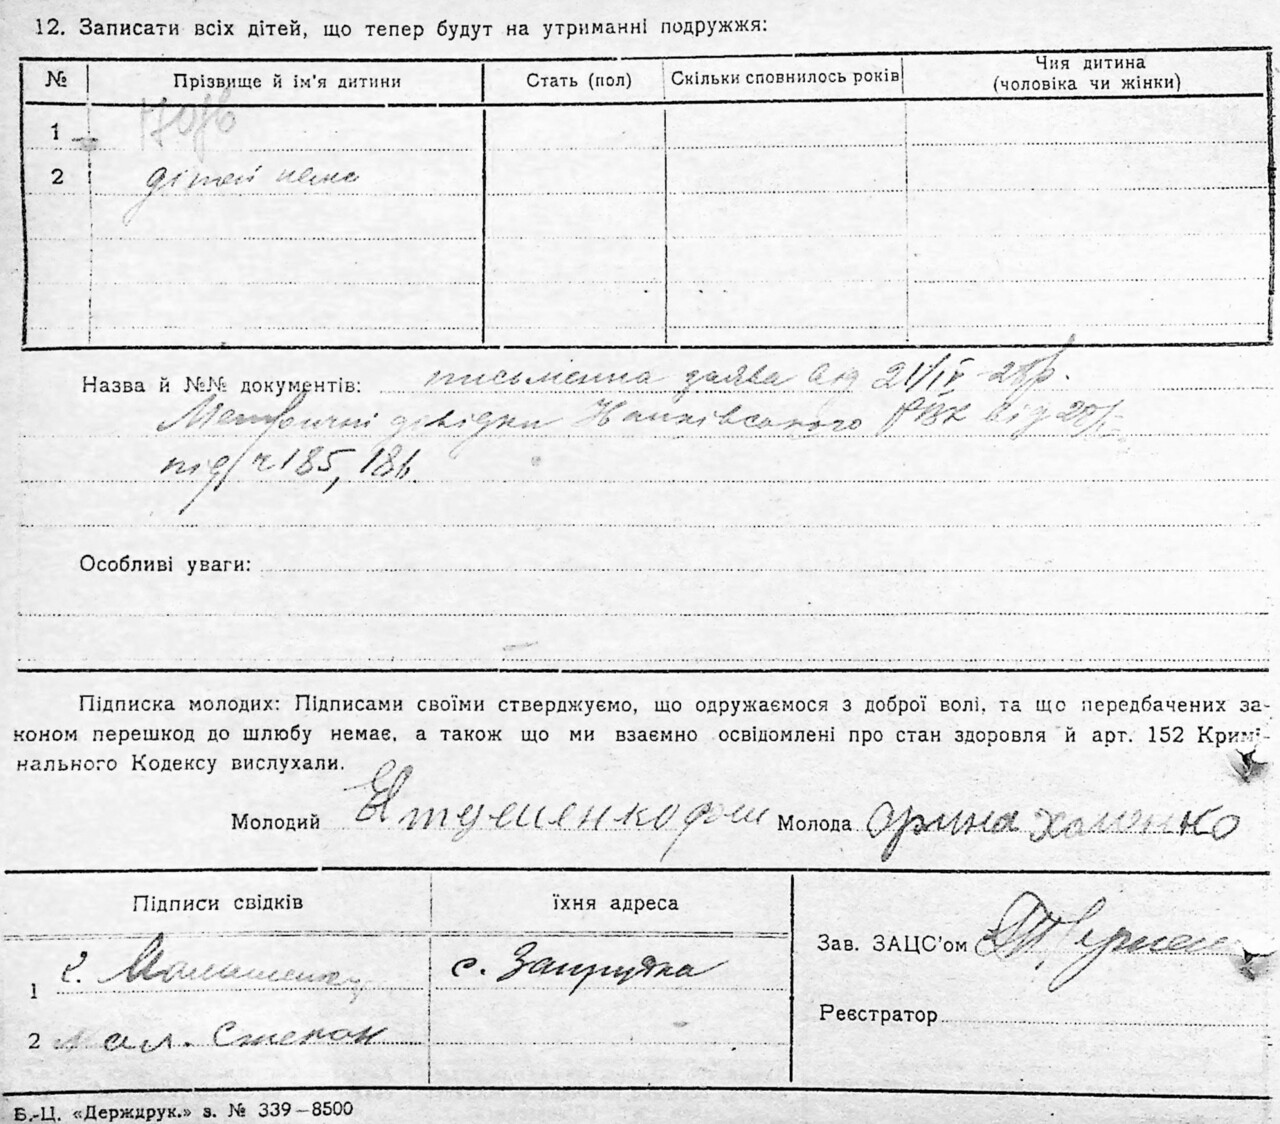 12. Записати всіх дітей, що тепер будут на утриманні подружжя:
№ Прізвище й ім'я дитини Стать (пол) Скільки сповнилось років Чия дитина (чоловіка чи жінки)
1
2 дітей нема
Назва й №№ документів: письменна заява від 21/IV
довідки від
під ч 185, 186.
Особливі уваги:
Підписка молодих: Підписами своїми стверджуємо, що одружаємося з доброї волі, та що передбачених за-
коном перешкод до шлюбу немає, а також що ми взаємно освідомлені про стан здоровля й арт. 152 Кримі-
нального Кодексу вислухали.
Молодий Молода Орина
Підписи свідків їхня адреса
Зав. ЗАЦС'ом
1 с. Запрудка
Реєстратор
2 Степан
Б.-Ц. «Держдрук.» з. № 339—8500